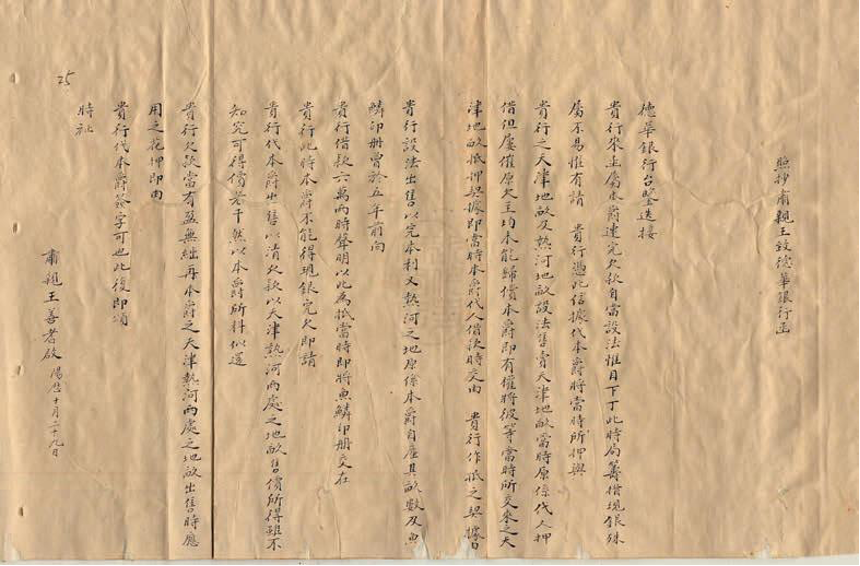 照抄肅親王致德華銀行函
德華銀行台鑒迭接
貴行來函屬本爵速完欠款自當設法惟目下丁此時局籌借現銀殊
屬不易惟有請 貴行憑此信據代本爵將當時所押與
貴行之天津地畝及熱河地畝設法售賣天津地畝當時原係代人押
借但屢催原欠主均未能歸償本爵即有權將彼等當時所交來之天
津地畝抵押契據即當時本爵代人借款時交由 貴行作抵之契據由
貴行設法出售以完本利又熱河之地原係本爵自產其畝數及魚
鱗印册曾於五年前向
貴行借款六萬兩時聲明以此為抵當時即將魚鱗印册交在
貴行此時本爵不能得現銀完欠即請
貴行代本爵出售以清欠款以天津熱河兩處之地畝售價所得雖不
知究可得價若干然以本爵所料似還
貴行欠款當有盈無絀再本爵之天津熱河兩處之地畝出售時應
用之花押即由
貴行代本爵簽字可也此復即頌
時祉
肅親王善耆啟 陽歷十月二十九日
25